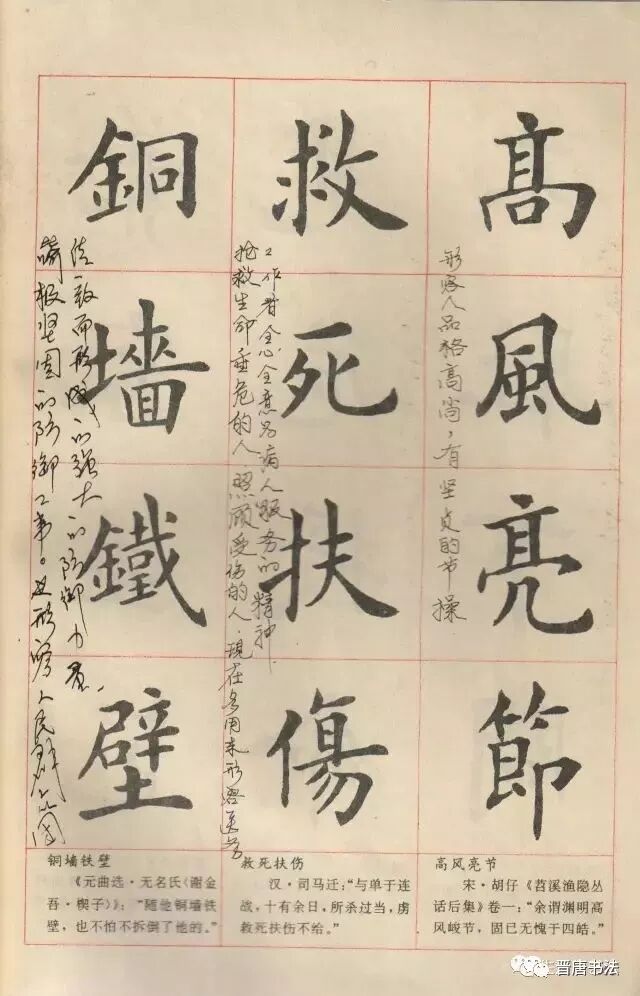 髙風亮節
形容人品格高尚，有坚贞的节操
救死扶傷
抢救生命垂危的人 照顾受伤的人.现在多用来形容医务
工作者全心全意为病人服务的精神.
銅墻鐵壁
喻极坚固的防御工事。也形容人民群众团
结一致而形成的强大的防御力量.
高风亮节
宋·胡仔《苕溪渔隐丛
话后集》卷一：“余谓渊明高
风峻节，固已无愧于四皓。”
救死扶伤
汉·司马迁：“与单于连
战，十有余日，所杀过当，虏
救死扶伤不给。”
铜墙铁壁
《元曲选·无名氏〈谢金
吾·楔子〉》：“随他铜墙铁
壁，也不怕不拆倒了他的。”
晋唐书法